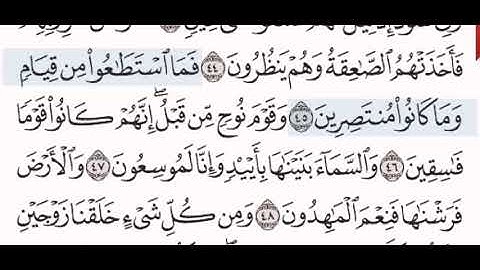 فَأَخَذَتْهُمُ ٱلصَّٰعِقَةُ وَهُمْ يَنظُرُونَ ٤٤ فَمَا ٱسْتَطَٰعُوا۟ مِن قِيَامٍ
وَمَا كَانُوا۟ مُنتَصِرِينَ ٤٥ وَقَوْمَ نُوحٍ مِّن قَبْلُ ۖ إِنَّهُمْ كَانُوا۟ قَوْمًا
فَٰسِقِينَ ٤٦ وَٱلسَّمَآءَ بَنَيْنَٰهَا بِأَيْي۟دٍ وَإِنَّا لَمُوسِعُونَ ٤٧ وَٱلْأَرْضَ
فَرَشْنَٰهَا فَنِعْمَ ٱلْمَٰهِدُونَ ٤٨ وَمِن كُلِّ شَىْءٍ خَلَقْنَا زَوْجَيْنِ